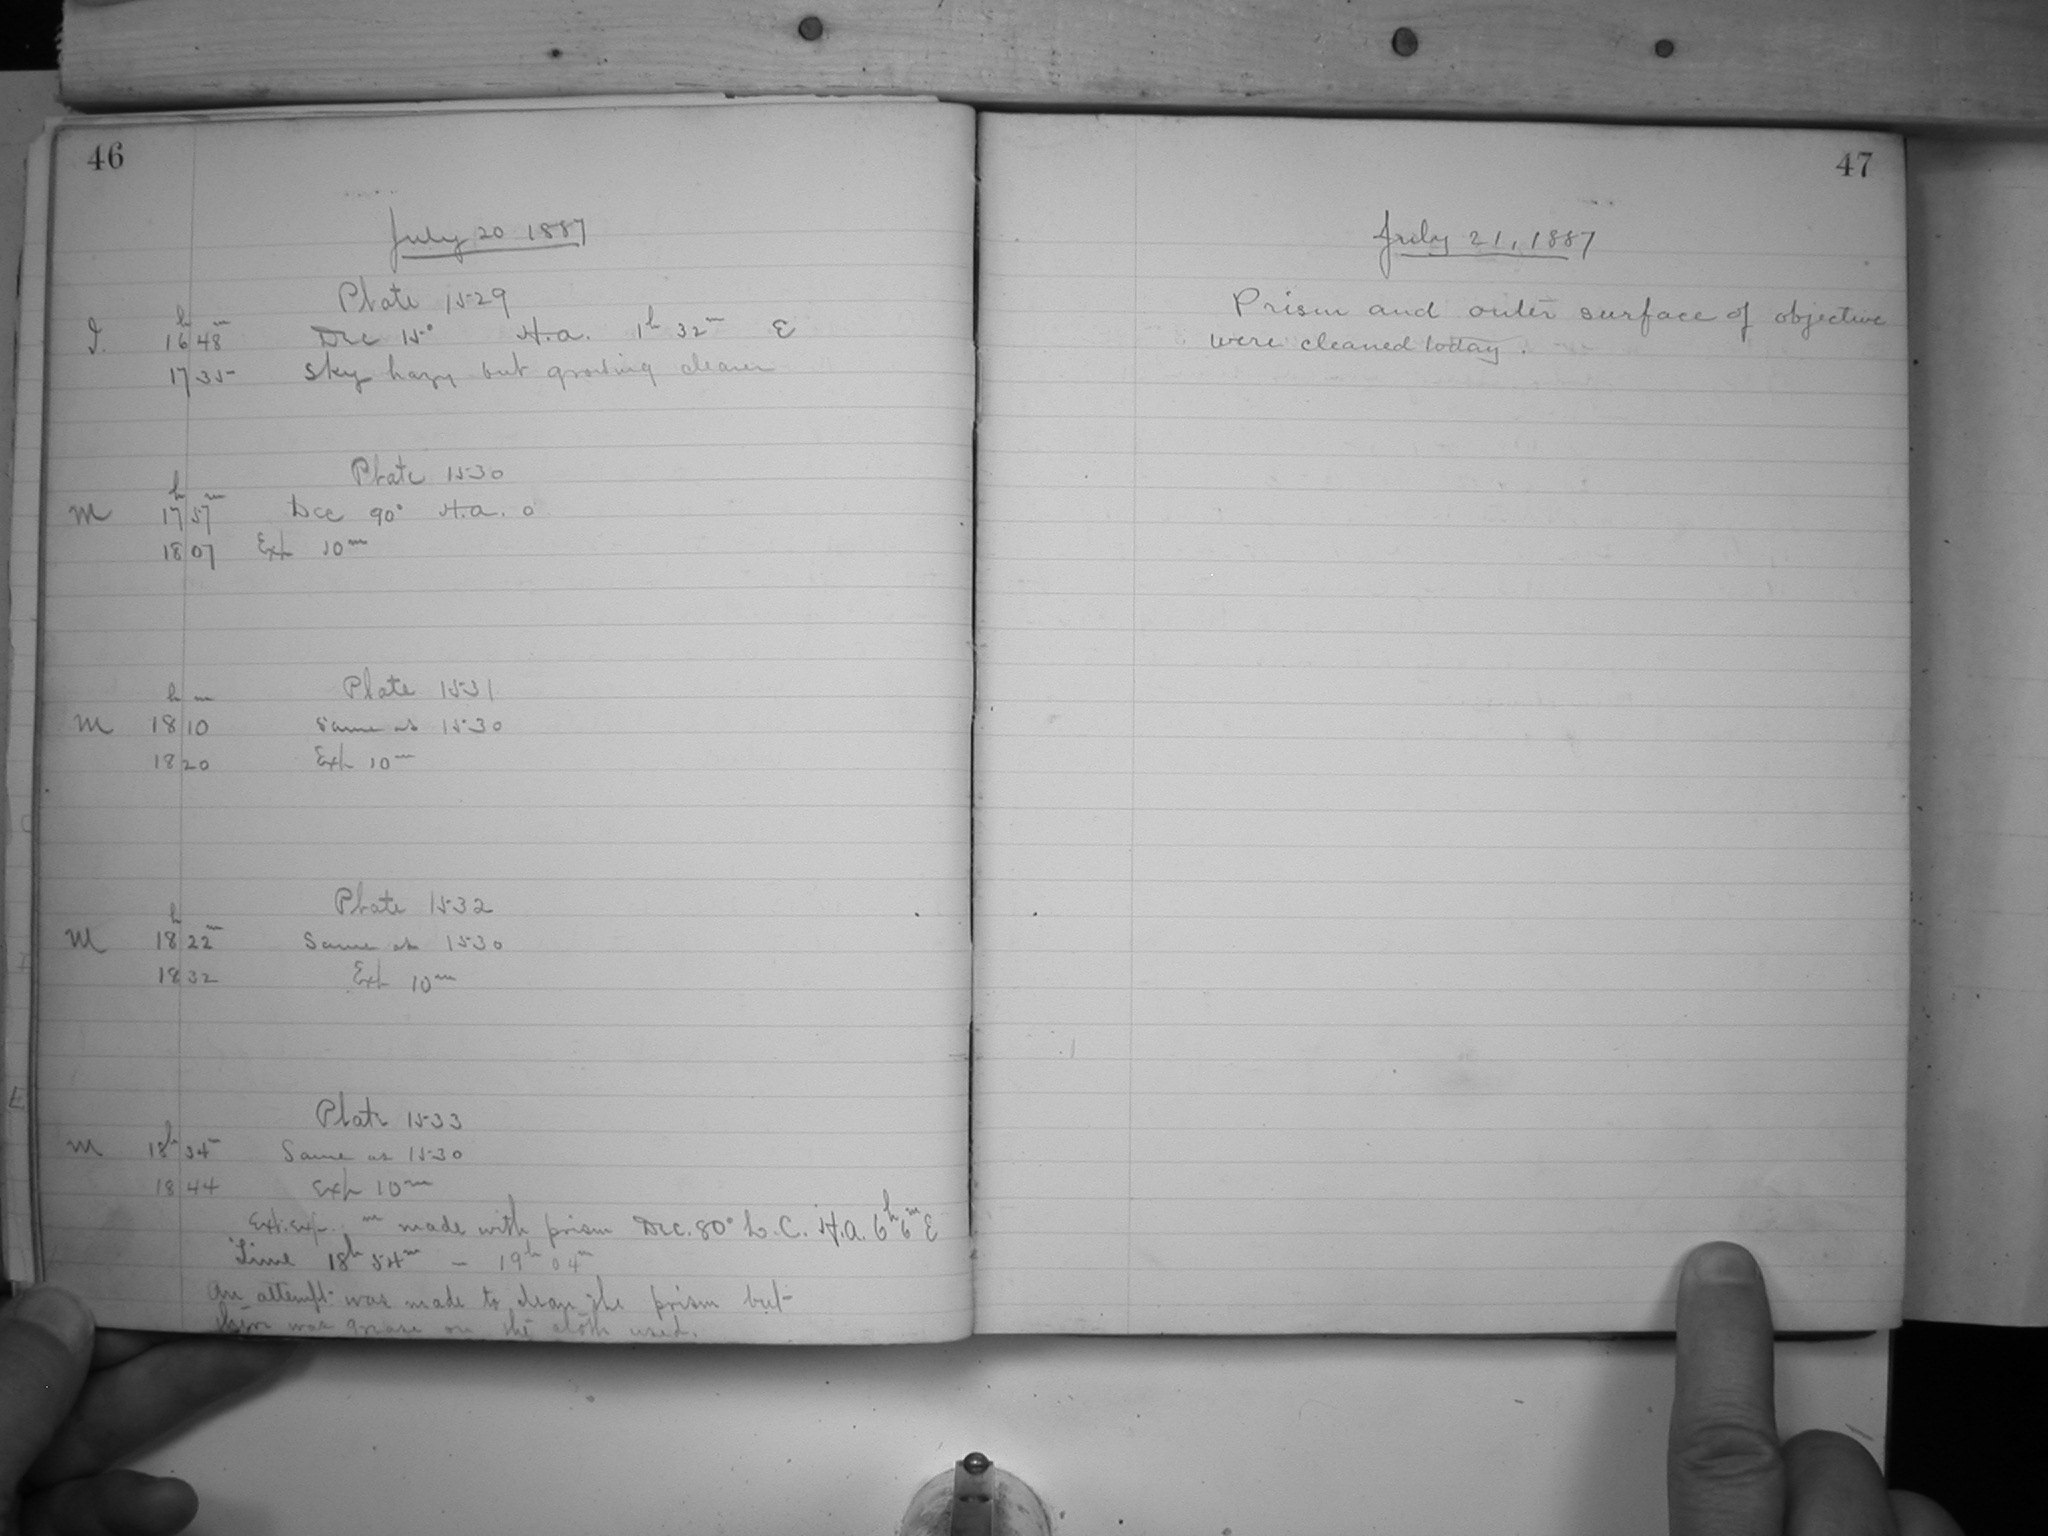 46
July 20 1887
Plate 1529
h m
I. 16 48 Dec 15° H.a. 1h 32m E
17 35 Sky hazy but growing clearer
Plate 1530
h m
M 17 57 Dec 90° H.a. 0
18 07 Exp 10m
Plate 1531
h m
M 18 10 Same as 1530
18 20 Exp 10m
Plate 1532
h
M 18 22m Same as 1530
18 32 Exp 10m
Plate 1533
M 18h 34m Same as 1530
18 44 Exp 10m
Ext. exp. m made with prism Dec. 80° L. C. H.a. 6h 6m E
Time 18h 54m – 19h 04m
An attempt was made to clean the prism but
there was grease on the cloth used.
47
July 21, 1887
Prism and outer surface of objective
were cleaned today.